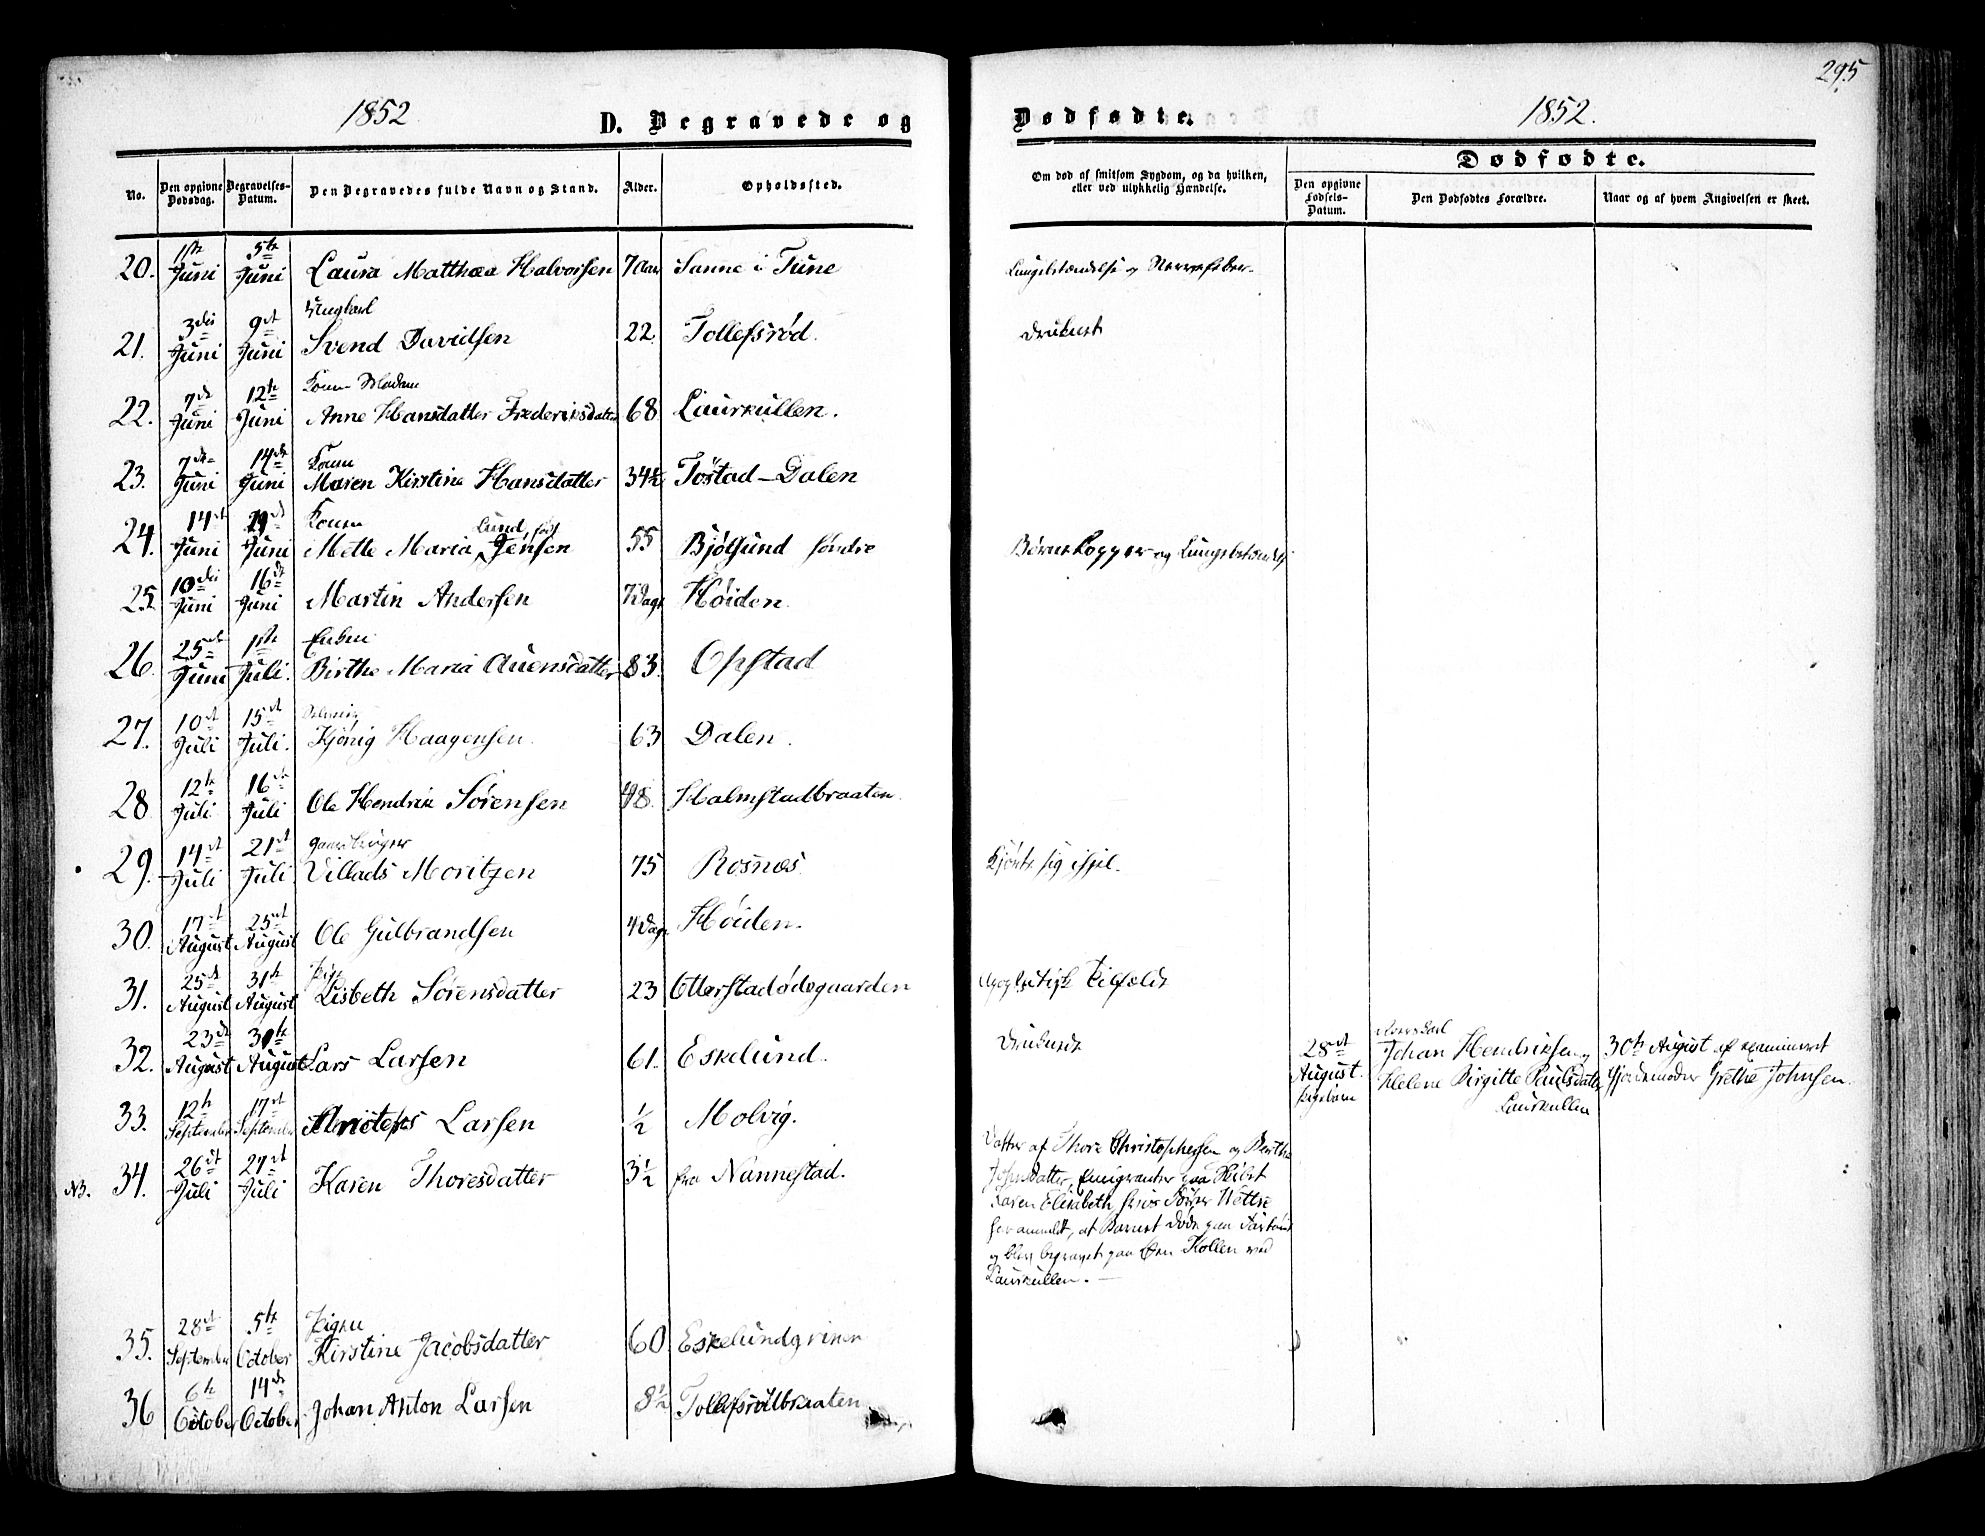 295
1852
D. Begravede og
Dødfødte.
1852.
No.
Den opgivne Dødsdag.
Begravelses-Datum.
Den Begravedes fulde Navn og Stand.
Alder.
Opholdssted.
Om død af smitsom Sygdom, og da hvilken,
eller ved ulykkelig Hændelse.
Dødfødte.
Den opgivne Fødsels-Datum.
Den Dødfødtes Forældre.
Naar og af hvem Angivelsen er skeet.
20. 1ste Juni 5te Juni Laura Matthæa Halvorsen 7 Aar Sanne i Tune
Ungkarl
21. 3die Juni 9de Juni Svend Davidsen 22 Tollefsrød. druknet
Kone Madam
22. 7de Juni 12te Juni Anne Hansdatter Frederiksdatter 68 Laurkullen.
Kone
23. 7de Juni 14de Juni Maren Kirstine Hansdatter 34½ Tostad-Dalen
Kone
Lund, født
24. 14de Juni Juni Mette Maria Jensen 55 Bjølsund søndre Børnekopper og Lungebetændelse
25. 10de Juni 16de Juni Martin Andersen 7 Dage Høiden.
Enken
26. 25de Juni 1ste Juli. Birthe Maria Auensdatter 83. Opstad
27. 10de Juli 15de Juli. Kjønig Haagensen. 63 Dalen.
28 12te Juli 16de Juli Ole Hendrik Sørensen 48. Halmstadbraaten.
Gaardbruger
29. 14de Juli 21de Juli Villads Moritzen 75 Rosnæs Kjørte sig ihjel.
30. 17de August 25de August Ole Gulbrandsen 4 Dage Høiden.
Pige
31. 25de August 31te August Lisbeth Sørensdatter 23 Otterstadødegaarden Apoplektisk Tilfælde
32. 23de August August Lars Larsen 61. Eskelund. Druknede
28de August Pigebarn
Johan Hendriksen og
Helene Birgitte Paulsdatter
Laurkullen
30te August af examineret
Gjordemoder Grethe Johnsen.
33. 12te September 17de September Larsen ½ Molvig.
NB. 34. 26de Juli 27de Juli Karen Thoresdatter 3½ fra Nannestad.
Datter af Thore Christophersen og Berthe
Johnsdatter, Emigranter paa Skibet
Karen Elisabeth,
har anmeldt, at Barnet døde paa
og blev begravet paa Øen Kollen ved
Laurkullen. —
Pigen
35. 28de September 5te October Kirstine Jacobsdatter 60
36 6te October 14de October Johan Anton Larsen 8½ Tollefsrødbraaten